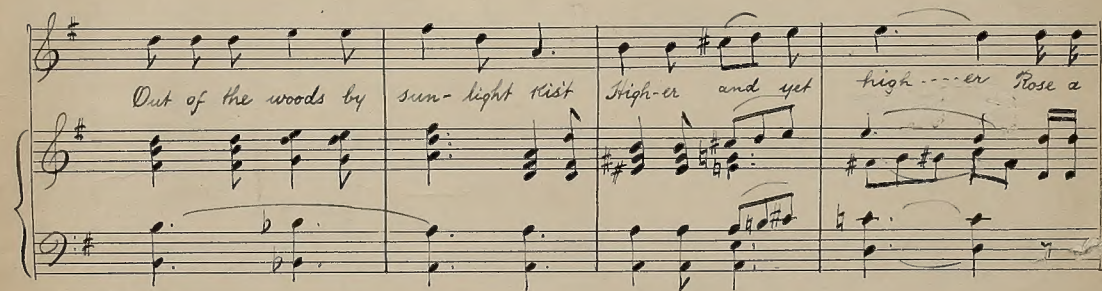 Out of the woods by sun-light kis't High-er and yet high----er Rose a